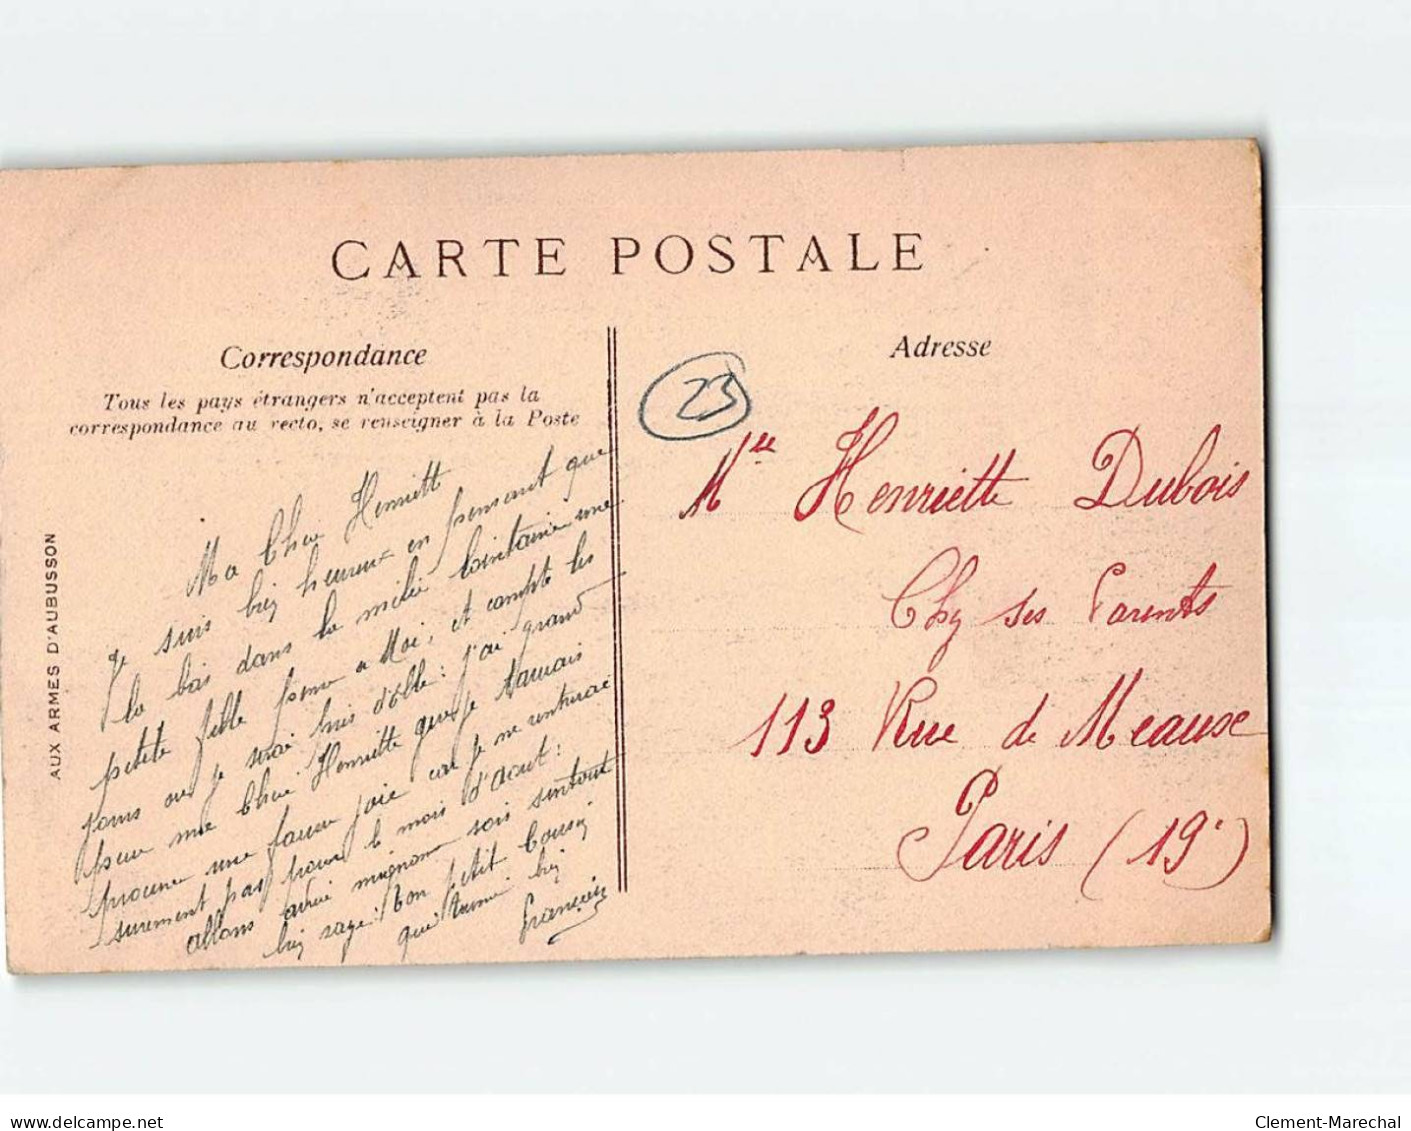 CARTE POSTALE
Correspondance
Tous les pays étrangers n'acceptent pas la
correspondance au recto, se renseigner à la Poste
Adresse
23
AUX ARMES D'AUBUSSON
Ma Chere Henriett
Je suis bien heureux en pensant que
la bas dans la lointaine une
petite fille pense a Moi, et compte les
jours ou je serai près d'elle: j'ai grand
peur ma Chere Henriette que je t'aurais
procurer une fausse joie car je ne rentrerai
surement pas pour le mois d'aout:
allons mignonne sois surtout
bien sage: Ton petit Cousin
qui t'aime bien
François
Mlle Henriette Dubois
Chez ses Parents
113 Rue de Meaux
Paris (19e)
delcampe.net
Clement-Marechal